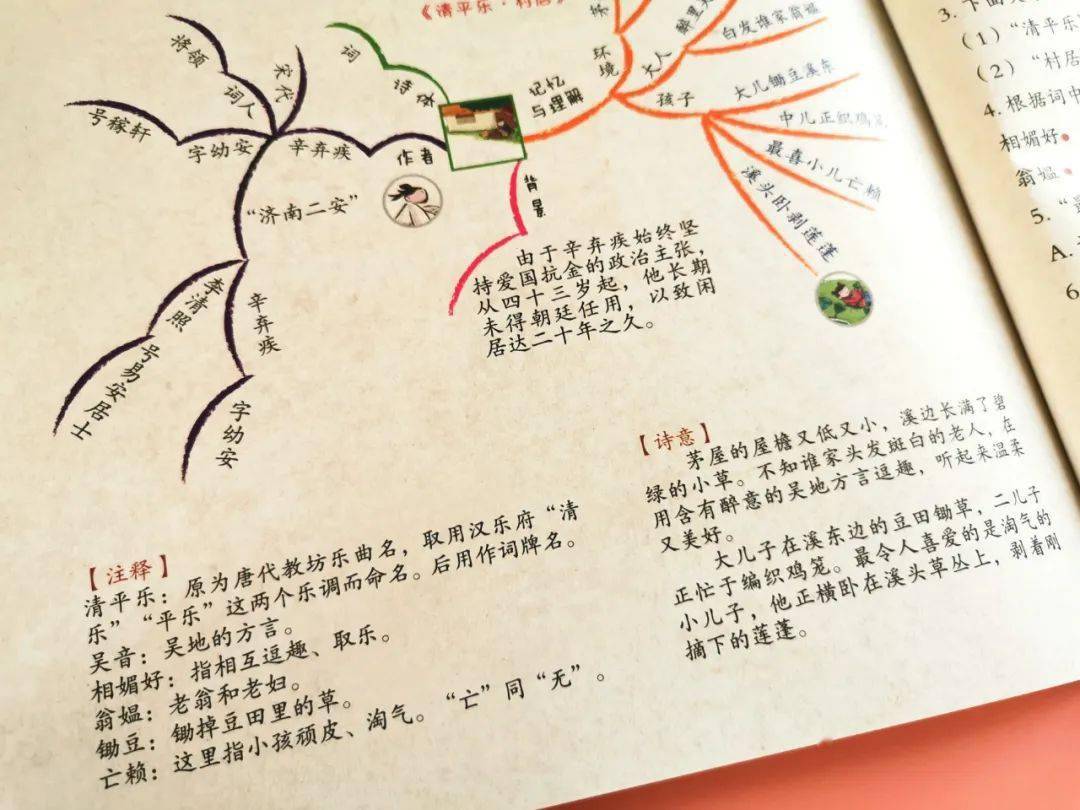 《清平乐·村居》
词
诗体
记忆
与理解
环境
大人
醉里
白发谁家翁媪
孩子
大儿锄豆溪东
中儿正织鸡
最喜小儿亡赖
溪头卧剥莲蓬
背景
作者
辛弃疾
宋代
词人
将领
字幼安
号稼轩
“济南二安”
李清照
号易安居士
辛弃疾
字幼安
由于辛弃疾始终坚
持爱国抗金的政治主张,
从四十三岁起,他长期
未得朝廷任用,以致闲
居达二十年之久。
【注释】
清平乐:原为唐代教坊乐曲名,取用汉乐府“清
乐”“平乐”这两个乐调而命名。后用作词牌名。
吴音:吴地的方言。
相媚好:指相互逗趣、取乐。
翁媪:老翁和老妇。
锄豆:锄掉豆田里的草。
亡赖:这里指小孩顽皮、淘气。“亡”同“无”。
【诗意】
茅屋的屋檐又低又小,溪边长满了碧
绿的小草。不知谁家头发斑白的老人,在
用含有醉意的吴地方言逗趣,听起来温柔
又美好。
大儿子在溪东边的豆田锄草,二儿子
正忙于编织鸡笼。最令人喜爱的是淘气的
小儿子,他正横卧在溪头草丛上,剥着刚
摘下的莲蓬。
3. 下面
(1)“清平乐
(2)“村居
4. 根据词中
相媚好
翁媪
5. “
A.
6